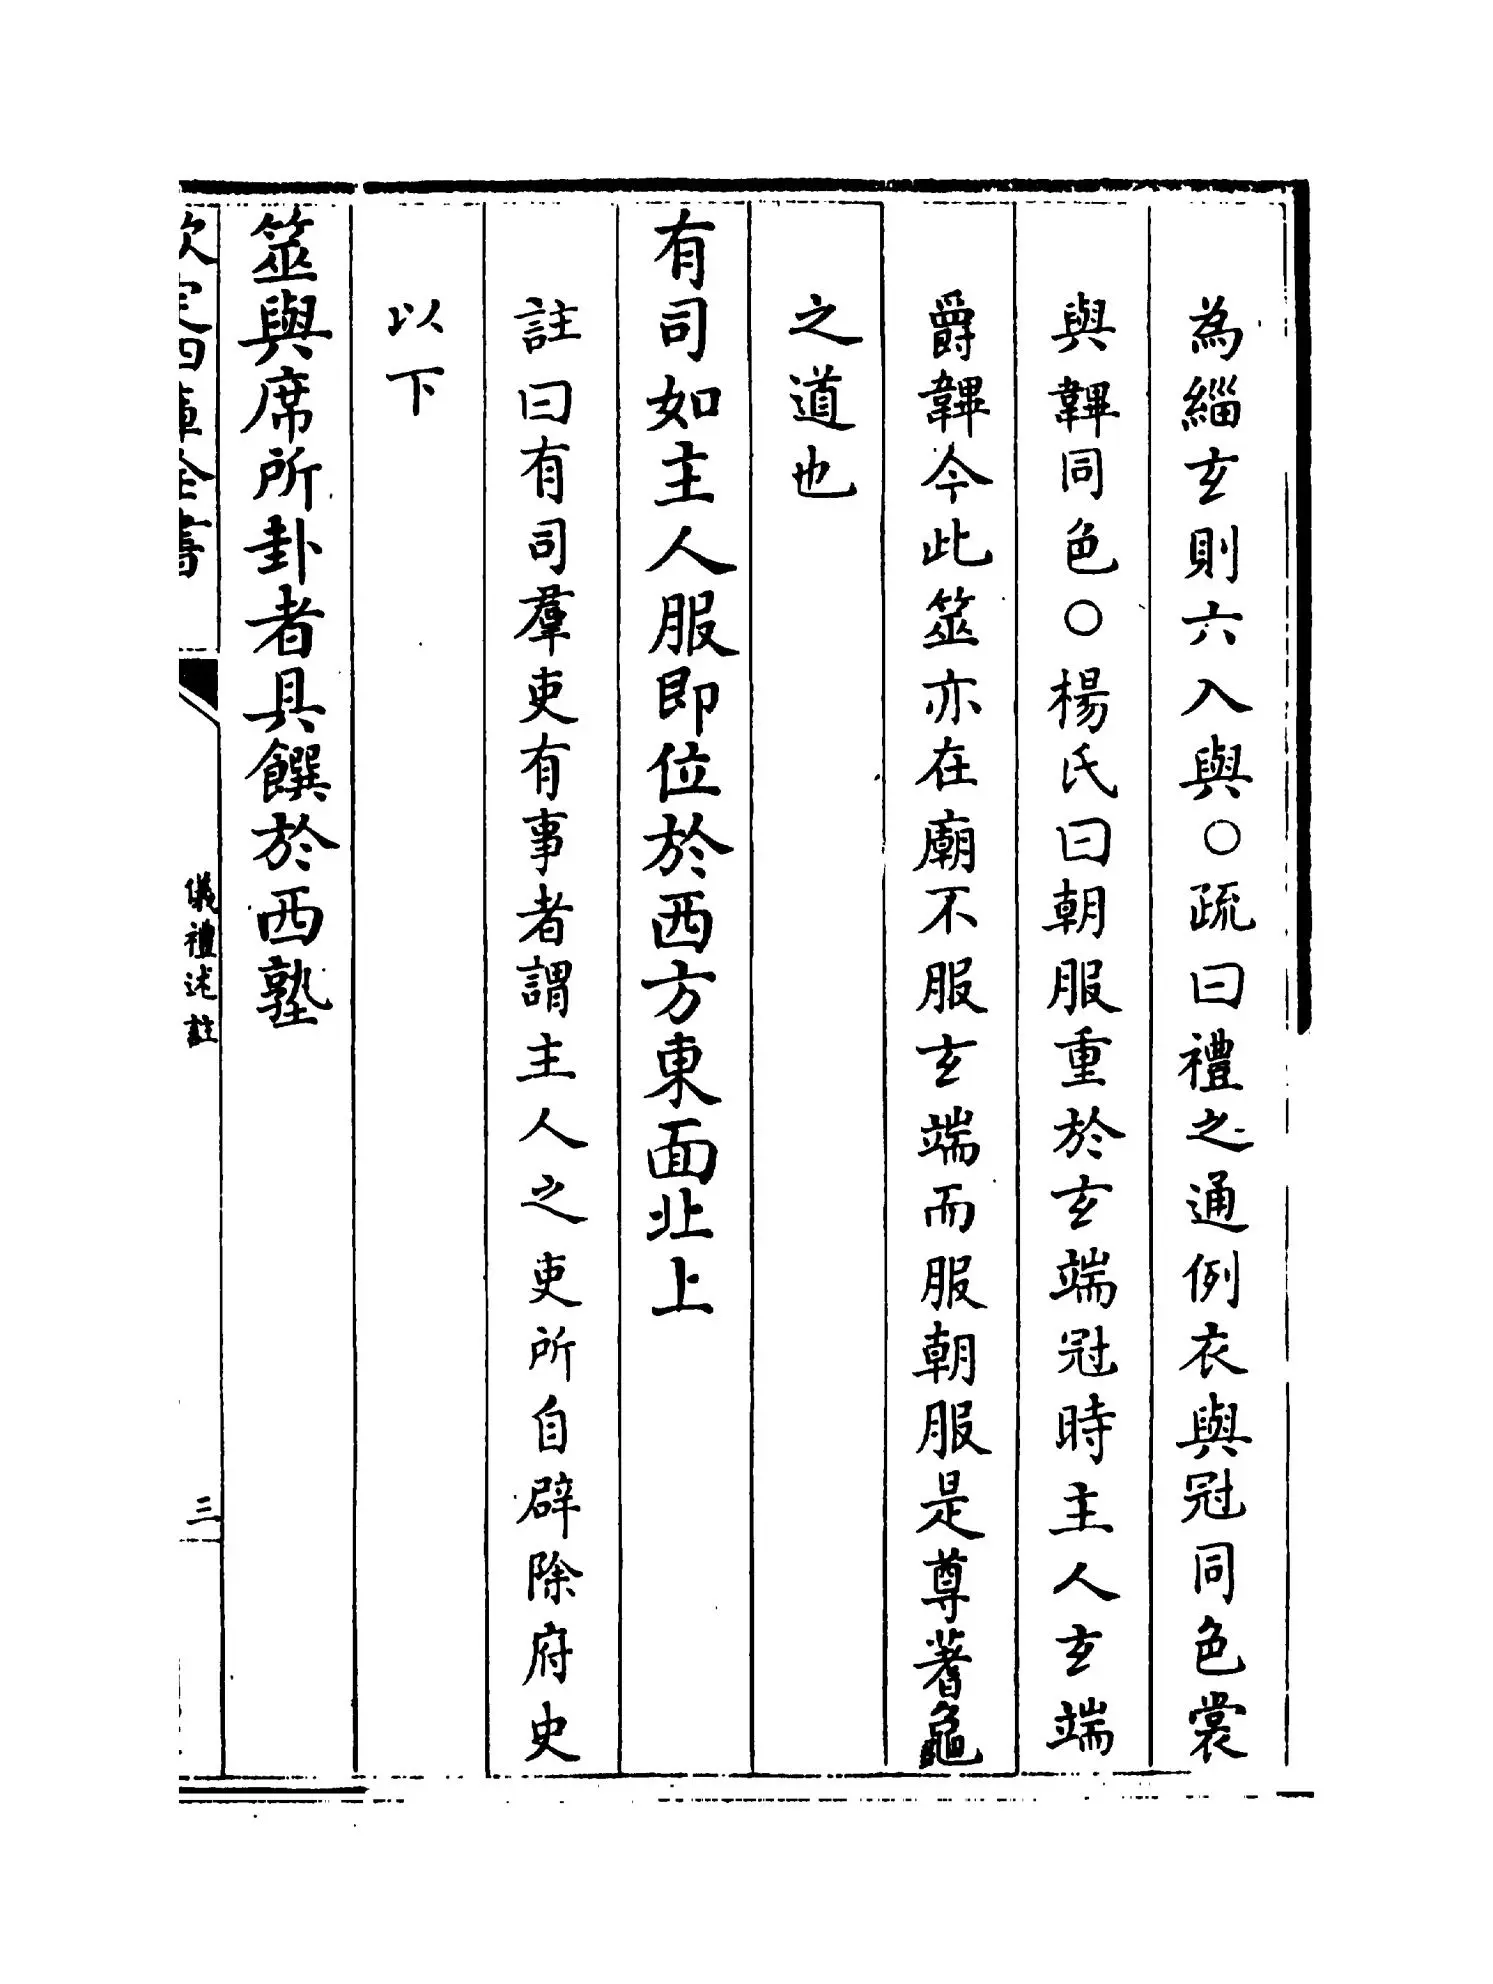 為緇玄則六入與○疏曰禮之通例衣與冠同色裳
與韠同色○楊氏曰朝服重於玄端冠時主人玄端
爵韠今此筮亦在廟不服玄端而服朝服是尊蓍龜
之道也
有司如主人服即位於西方東面北上
註曰有司羣吏有事者謂主人之吏所自辟除府史
以下
筮與席所卦者具饌於西塾
欽定四庫全書
儀禮述註
三